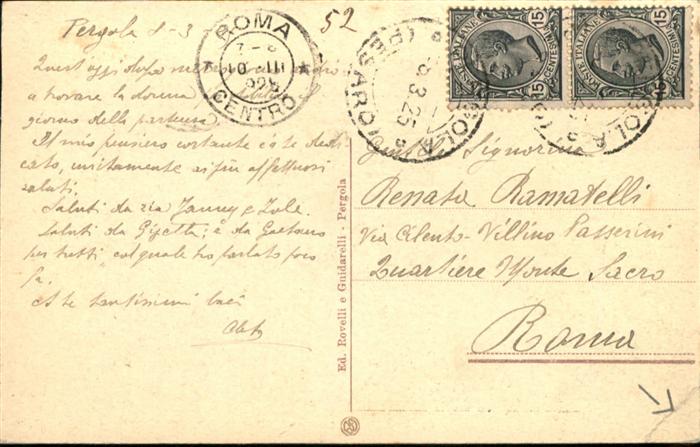 Pergola 8-3
52
Quest'oggi dopo
a trovare la donna
giorno della partenza
Il mio pensiero costante è a te dedi-
cato, unitamente ai più affettuosi
saluti
Saluti da zia Fanny e Iole.
Saluti da Gisetta; e da Gaetano
per tutti, col quale ho parlato poco
fa.
A te tantissimi baci
ROMA
CENTRO
POSTE ITALIANE
15 CENTESIMI 15
POSTE ITALIANE
15 CENTESIMI 15
PERGOLA (PESARO)
8.3.25
Ed. Rovelli e Guidarelli - Pergola
Gentile Signorina
Renata Ramatelli
Via Cilento - Villino Passerini
Quartiere Monte Sacro
Roma